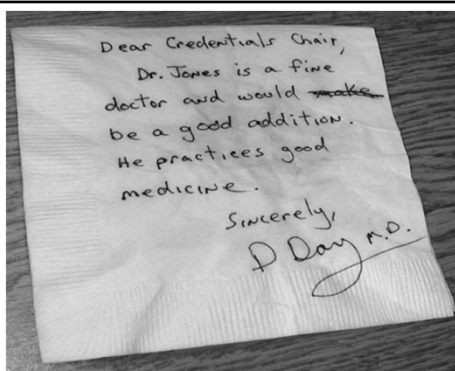 Dear Credentials Chair,
Dr. Jones is a fine
doctor and would make
be a good addition.
He practices good
medicine.
Sincerely,
D Day M.D.